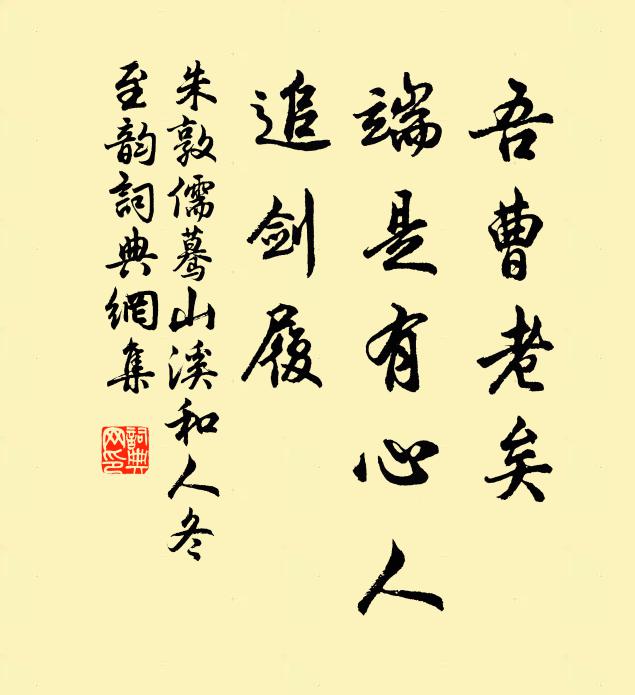 吾曹老矣
端是有心人
追剑履
朱敦儒蓦山溪和人冬
至韵词典網集
詞典网印